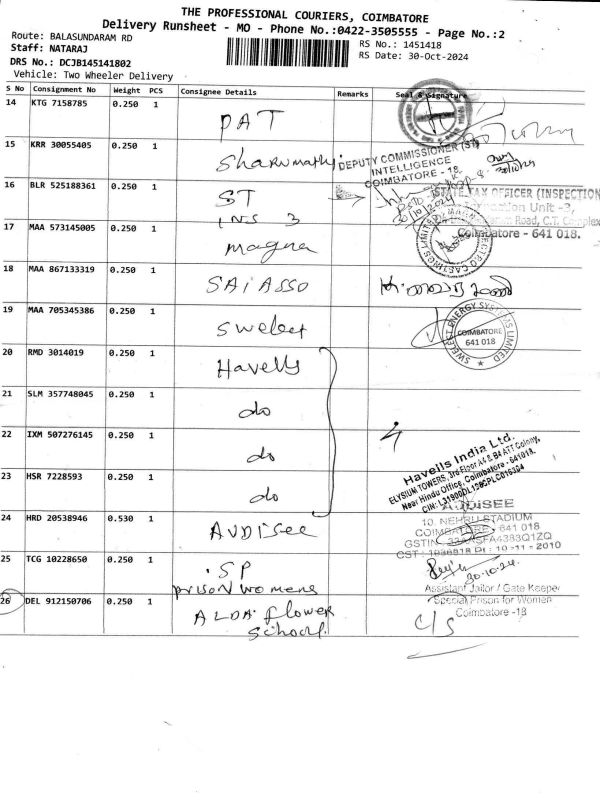 THE PROFESSIONAL COURIERS, COIMBATORE
Delivery Runsheet - MO - Phone No.:0422-3505555 - Page No.:2
Route: BALASUNDARAM RD
RS No.: 1451418
Staff: NATARAJ
RS Date: 30-Oct-2024
DRS No.: DCJB145141802
Vehicle: Two Wheeler Delivery
S No Consignment No Weight PCS Consignee Details Remarks Seal & Signature
14 KTG 7158785 0.250 1 PAT
15 KRR 30055405 0.250 1
DEPUTY COMMISSIONER (ST)
INTELLIGENCE
COIMBATORE - 18.
16 BLR 525188361 0.250 1 ST
INS 3
STATE TAX OFFICER (INSPECTION
Unit -3,
Road, C.T. Complex
Coimbatore - 641 018.
17 MAA 573145005 0.250 1 magna
18 MAA 867133319 0.250 1 SAI ASSO
19 MAA 705345386 0.250 1 Swelect
SWELECT ENERGY SYSTEMS LIMITED
COIMBATORE
641 018
20 RMD 3014019 0.250 1 Havells
21 SLM 357748045 0.250 1 do
22 IXM 507276145 0.250 1 do
4
23 HSR 7228593 0.250 1 do
Havells India Ltd.
ELYSIUM TOWERS, 3rd Floor A4 & B4 ATT Colony,
Near Hindu Office, Coimbatore - 641018.
24 HRD 20538946 0.530 1 AUDISEE
AUDISEE
10, NEHRU STADIUM
COIMBATORE - 641 018
25 TCG 10228650 0.250 1 SP
prison womens
30-10-24
Assistant Jailor / Gate Keeper
Special Prison for Women
Coimbatore -18
26 DEL 912150706 0.250 1 ALDA flower
School
C/S